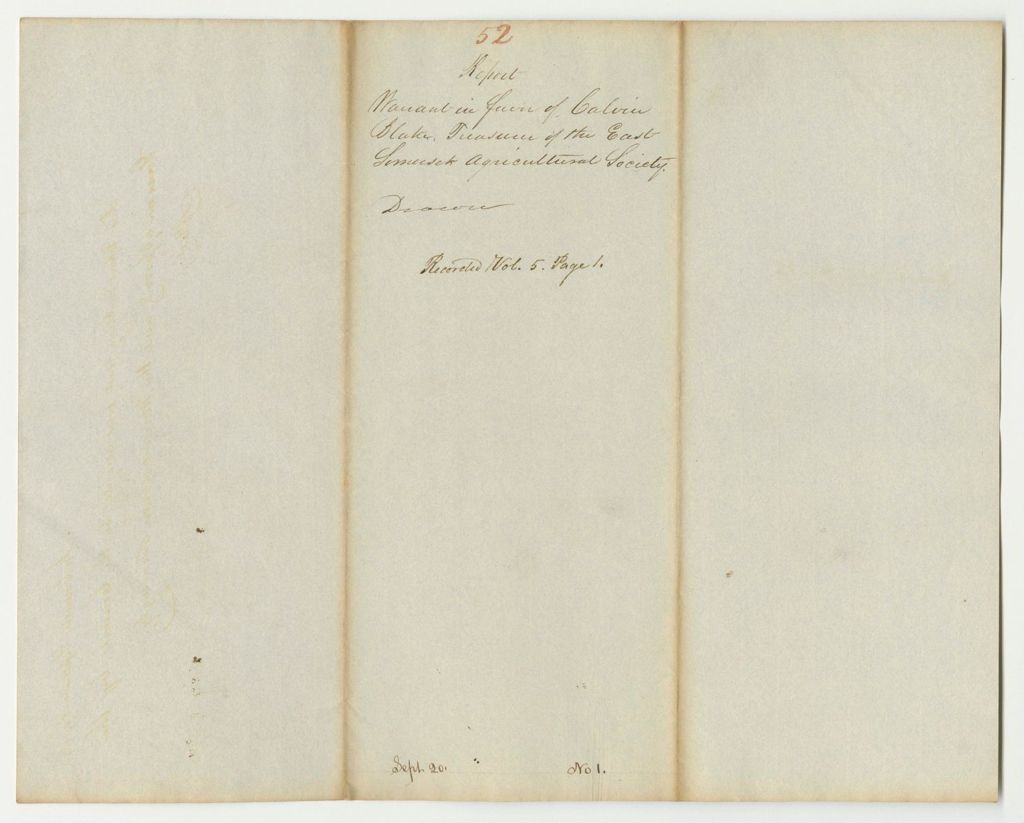 52
Report
Warrant in favor of Calvin
Blake, Treasurer of the East
Somerset Agricultural Society.
Drawn
Recorded Vol. 5. Page 1.
Sept. 20. No 1.